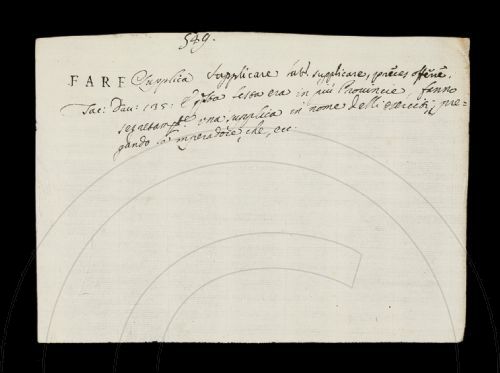 549.
FARE Supplica Supplicare subl. supplicare, preces offerre.
Tac: Dav: 135: E q̃sta festa era in più Provincie, fanno
segretamte. una supplica in nome delli eserciti, pre-
gando lo 'mperadore, che, ec: